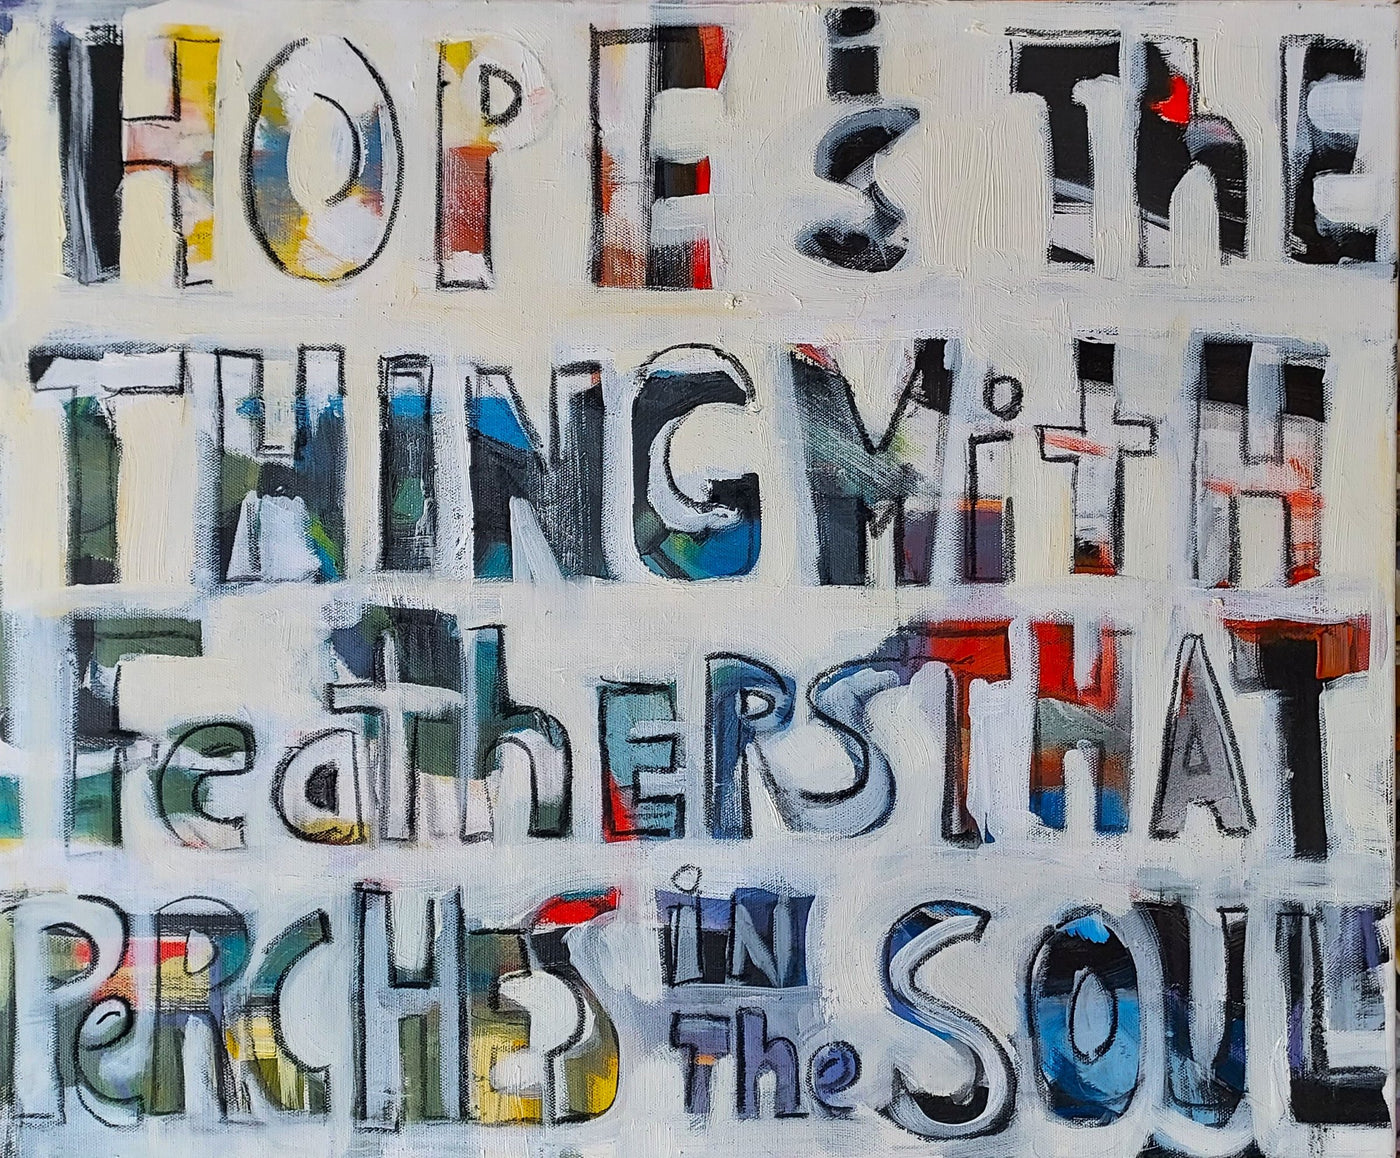 HOPE is The
THING WitH
FeathERS THAT
PeRCHES in The SOUL